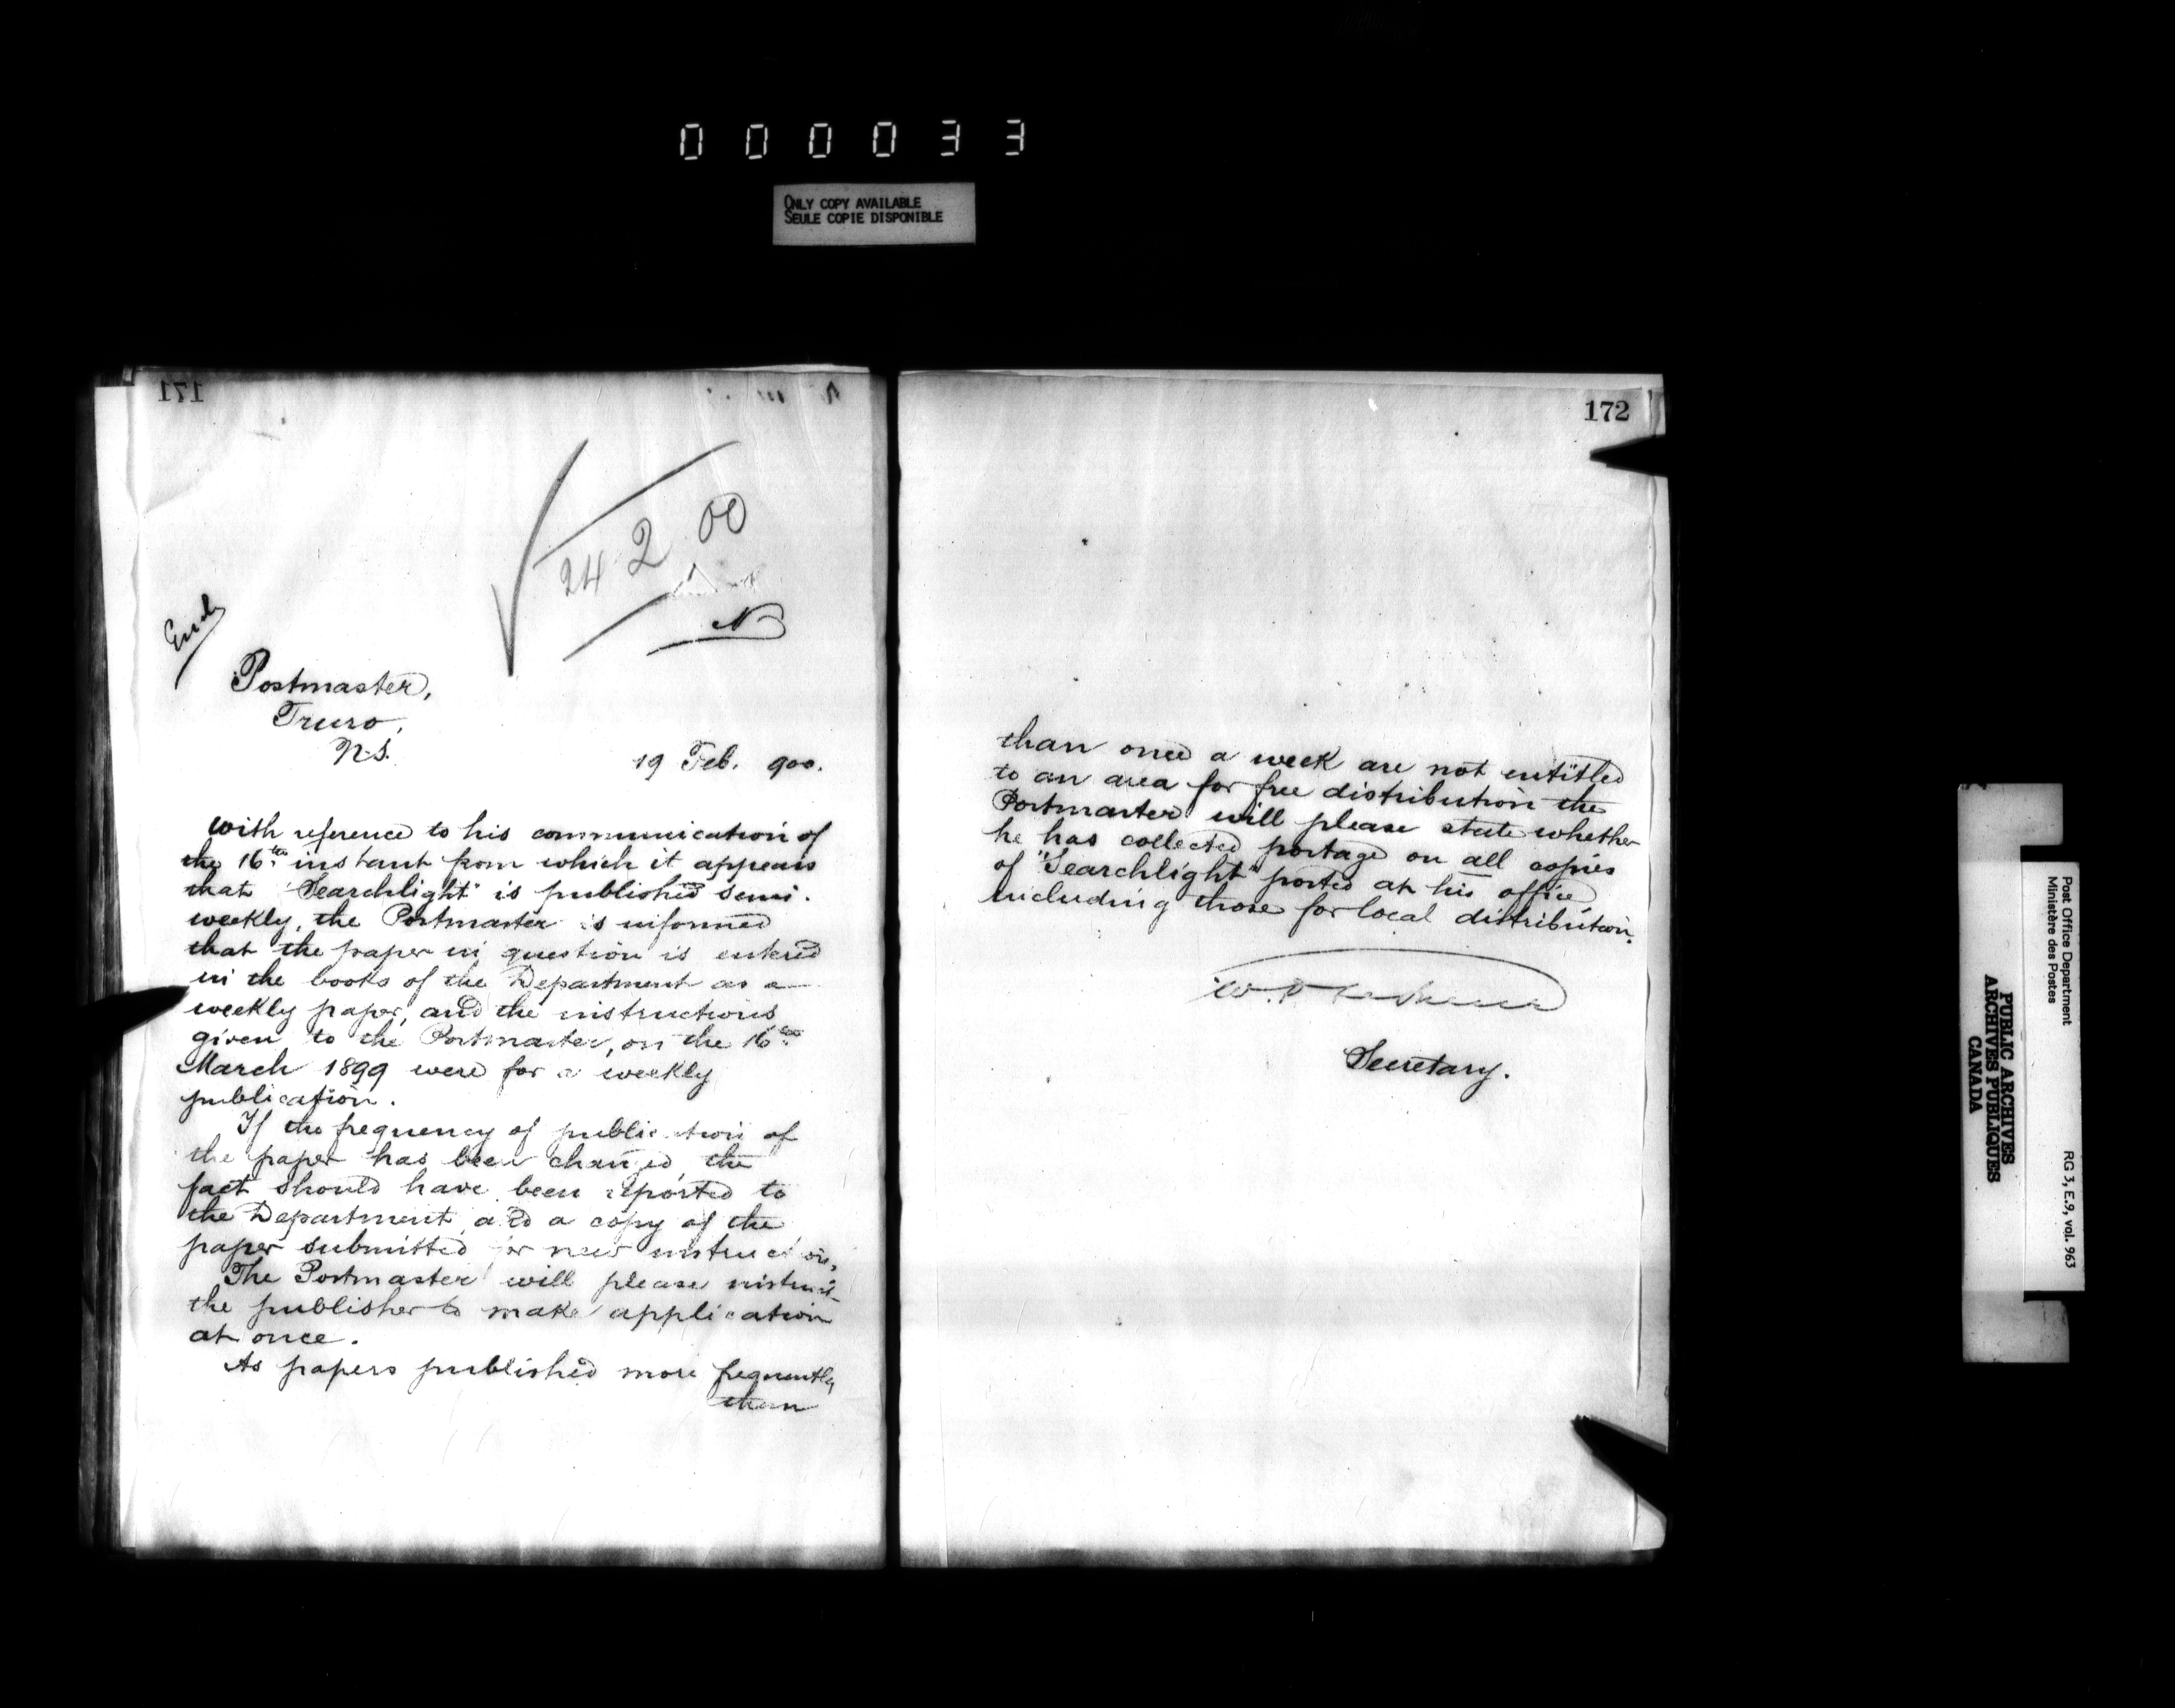 000033
ONLY COPY AVAILABLE
SEULE COPIE DISPONIBLE
171
24 2 00
N
Encl
Postmaster,
Truro,
N.S.
19 Feb. 900.
With reference to his communication of
the 16th instant from which it appears
that "Searchlight" is published semi-
weekly, the Postmaster is informed
that the paper in question is entered
in the books of the Department as a
weekly paper, and the instructions
given to the Postmaster, on the 16th
March 1899 were for a weekly
publication.
If the frequency of publication of
the paper has been changed, the
fact should have been reported to
the Department and a copy of the
paper submitted for new instructions.
The Postmaster will please instruct
the publisher to make application
at once.
As papers published more frequently
than
172
than once a week are not entitled
to an area for free distribution the
Postmaster will please state whether
he has collected postage on all copies
of "Searchlight" posted at his office
including those for local distribution.
W.
Secretary.
Post Office Department
Ministère des Postes
RG 3, E.9, vol. 963
PUBLIC ARCHIVES
ARCHIVES PUBLIQUES
CANADA